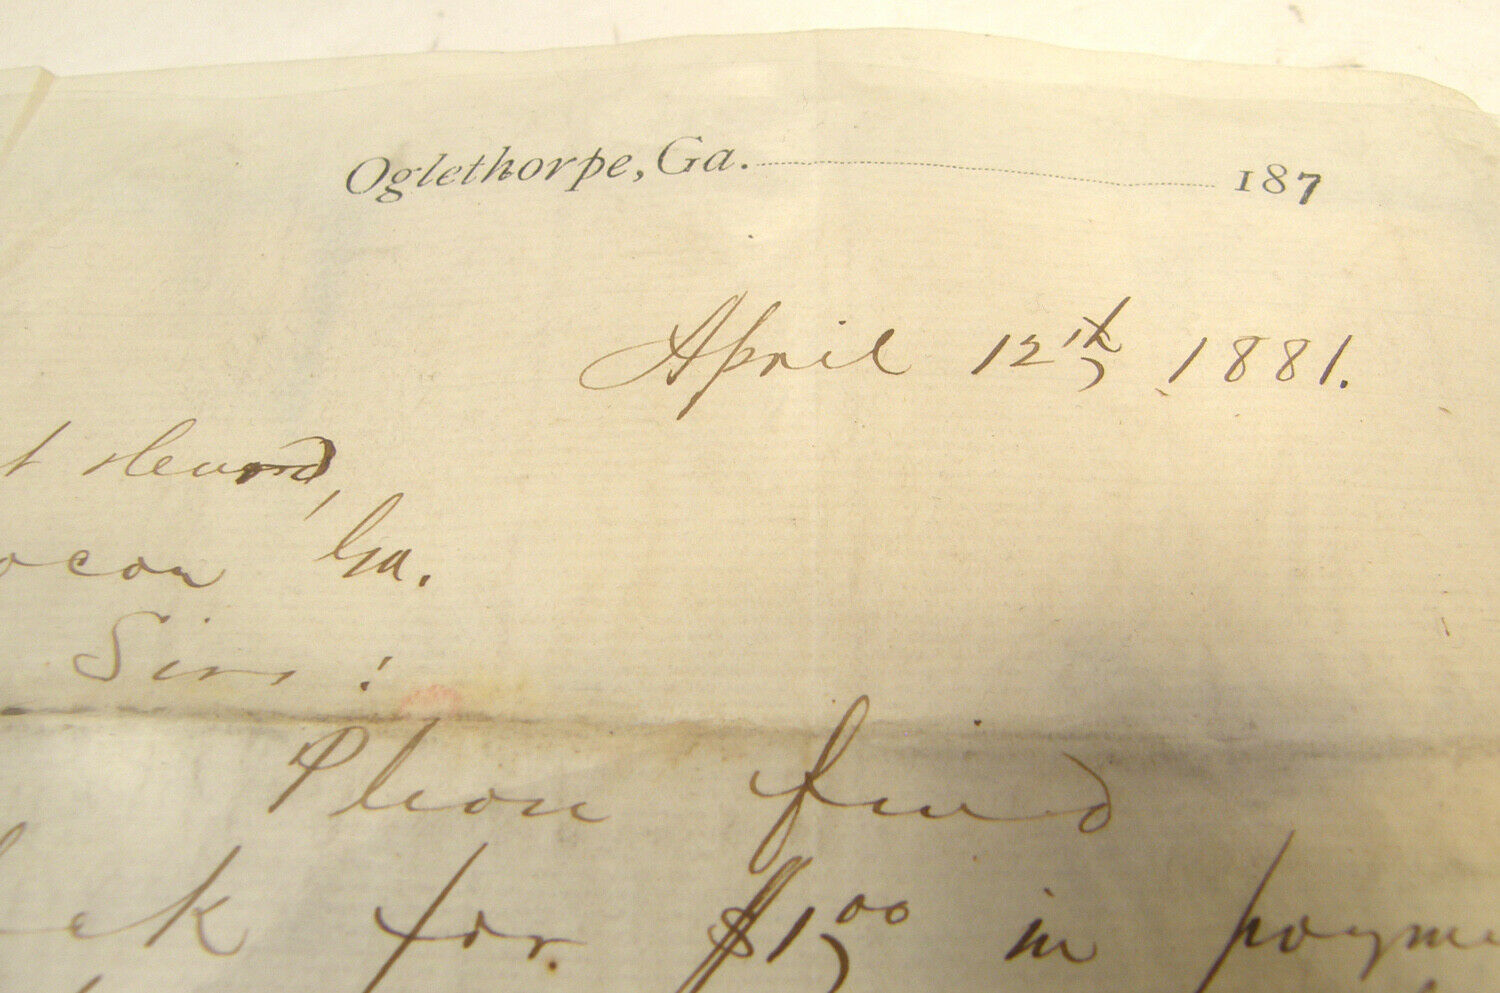 Oglethorpe, Ga. 187
April 12th, 1881.
ocon Ga.
Sirs :
Please find
ck for $1,00 in payme